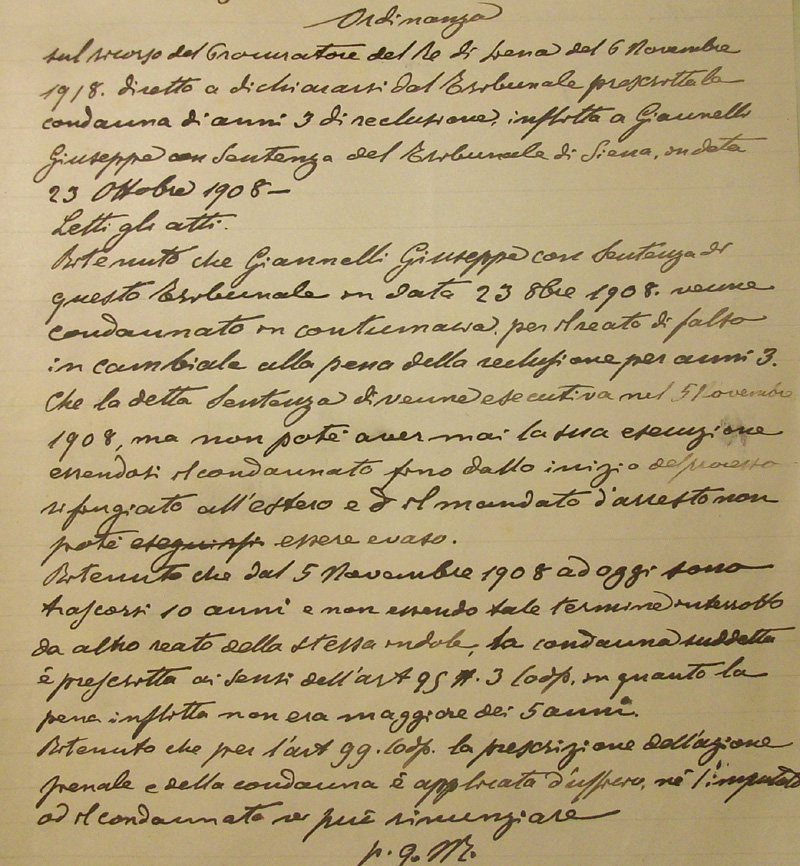 Ordinanza
sul ricorso del Procuratore del Re di Siena del 6 Novembre
1918. diretto a dichiararsi dal Tribunale prescritta la
condanna di anni 3 di reclusione, inflitta a Giannelli
Giuseppe con Sentenza del Tribunale di Siena, in data
23 Ottobre 1908 —
Letti gli atti.
Ritenuto che Giannelli Giuseppe con Sentenza di
questo Tribunale in data 23 8bre 1908. venne
condannato in contumacia, per il reato di falso
in cambiale alla pena della reclusione per anni 3.
Che la detta Sentenza divenne esecutiva nel 5 Novembre
1908, ma non poté aver mai la sua esecuzione
essendosi il condannato fino dallo inizio del processo
rifugiato all'estero e d il mandato d'arresto non
poté eseguirsi essere evaso.
Ritenuto che dal 5 Novembre 1908 ad oggi sono
trascorsi 10 anni e non essendo tale termine interrotto
da altro reato della stessa indole, la condanna suddetta
è prescritta ai sensi dell'art 95 N. 3 Cod p. in quanto la
pena inflitta non era maggiore dei 5 anni.
Ritenuto che per l'art 99. Cod p. la prescrizione dell'azione
penale e della condanna è applicata d'ufficio, né l'imputato
od il condannato vi può rinunziare
p. q. M.